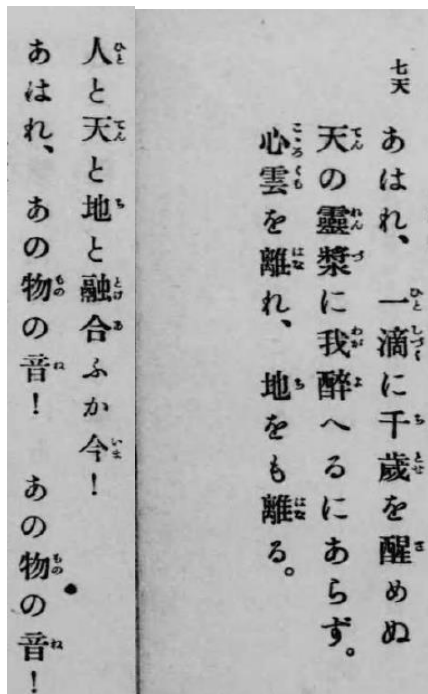 七天
あはれ、一滴に千歳を醒めぬ
天の靈漿に我醉へるにあらず。
心雲を離れ、地をも離る。
人と天と地と融合ふか今！
あはれ、あの物の音！　あの物の音！